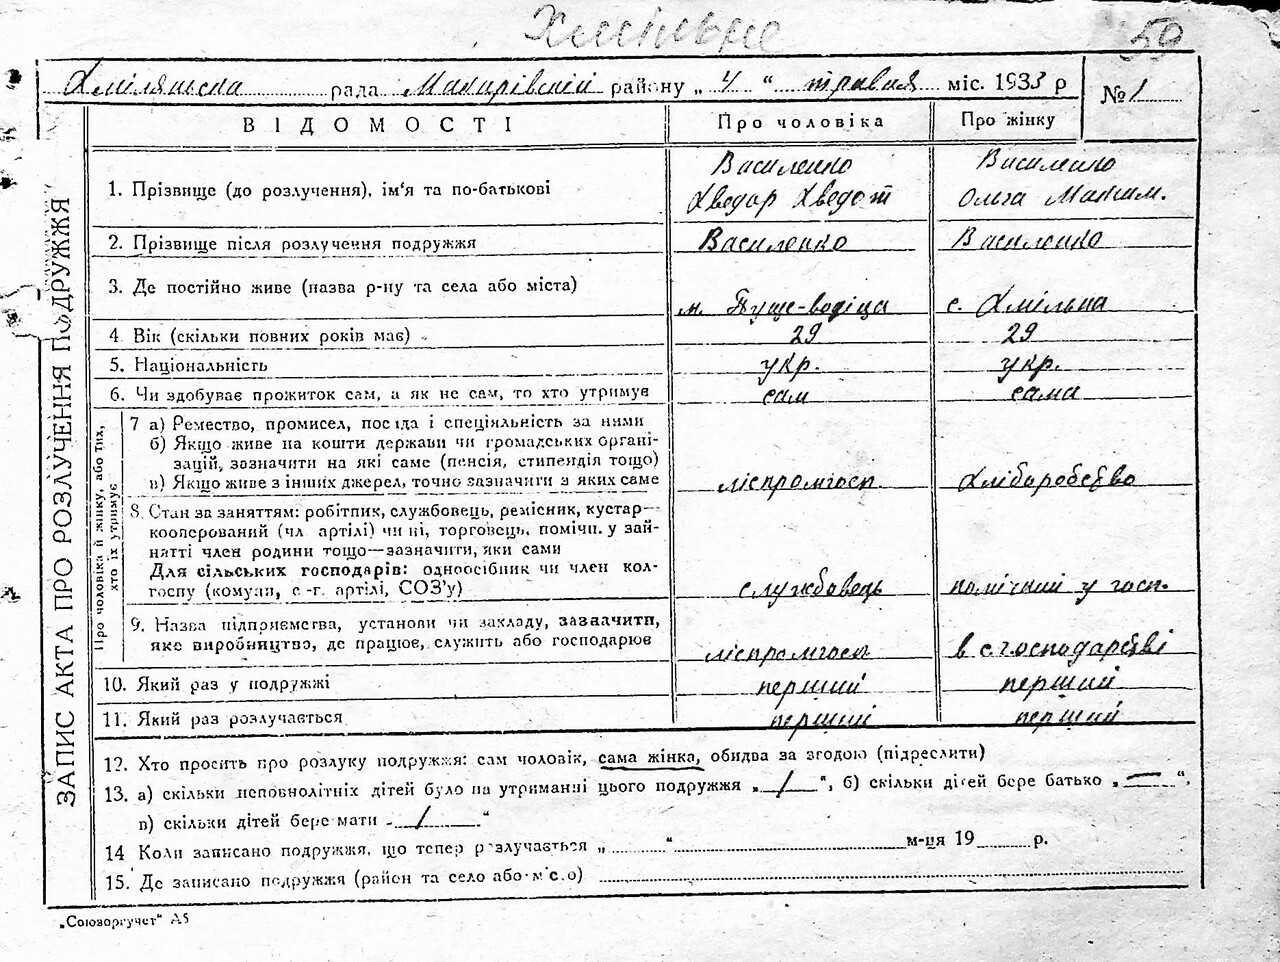 Хмільне
59
Хмілянська рада Макарівській району „ 4 “ травня міс. 1933 р
№ 1
ВІДОМОСТІ
Про чоловіка
Про жінку
ЗАПИС АКТА ПРО РОЗЛУЧЕННЯ ПОДРУЖЖЯ
1. Прізвище (до розлучення), ім'я та по-батькові
Василенко
Хведар Хведот
Василенко
Ольга Маким.
2. Прізвище після розлучення подружжя
Василенко
Василенко
3. Де постійно живе (назва р-ну та села або міста)
м. Пуще-водіца
с. Хмільна
4. Вік (скільки повних років має)
29
29
5. Національність
укр.
укр.
6. Чи здобуває прожиток сам, а як не сам, то хто утримує
сам
сама
Про чоловіка й жінку, або тих,
хто їх утримує
7 а) Ремество, промисел, посада і спеціяльність за ними
б) Якщо живе на кошти держави чи громадських органі-
зацій, зазначити на які саме (пенсія, стипендія тощо)
в) Якщо живе з інших джерел, точно зазначити з яких саме
ліспромгосп
Хліборобство
8. Стан за заняттям: робітник, службовець, ремісник, кустар—
кооперований (чл артілі) чи ні, торговець, помічн. у зай-
нятті член родини тощо—зазначити, яки сами
Для сільських господарів: одноосібник чи член кол-
госпу (комуни, с.-г. артілі, СОЗ'у)
службовець
помічний у госп.
9. Назва підприємства, установи чи закладу, зазначити,
яке виробництво, де працює, служить або господарює
ліспромгосп
в с. господарстві
10. Який раз у подружжі
перший
перший
11. Який раз розлучається
перший
перший
12. Хто просить про розлуку подружжя: сам чоловік, сама жінка, обидва за згодою (підреслити)
13. а) скільки неповнолітніх дітей було на утриманні цього подружжя „ / “, б) скільки дітей бере батько „ — “,
в) скільки дітей бере мати - / “
14 Коли записано подружжя, що тепер розлучається „ “ м-ця 19 р.
15. Де записано подружжя (район та село або місто)
„Союзоргучет“ А5